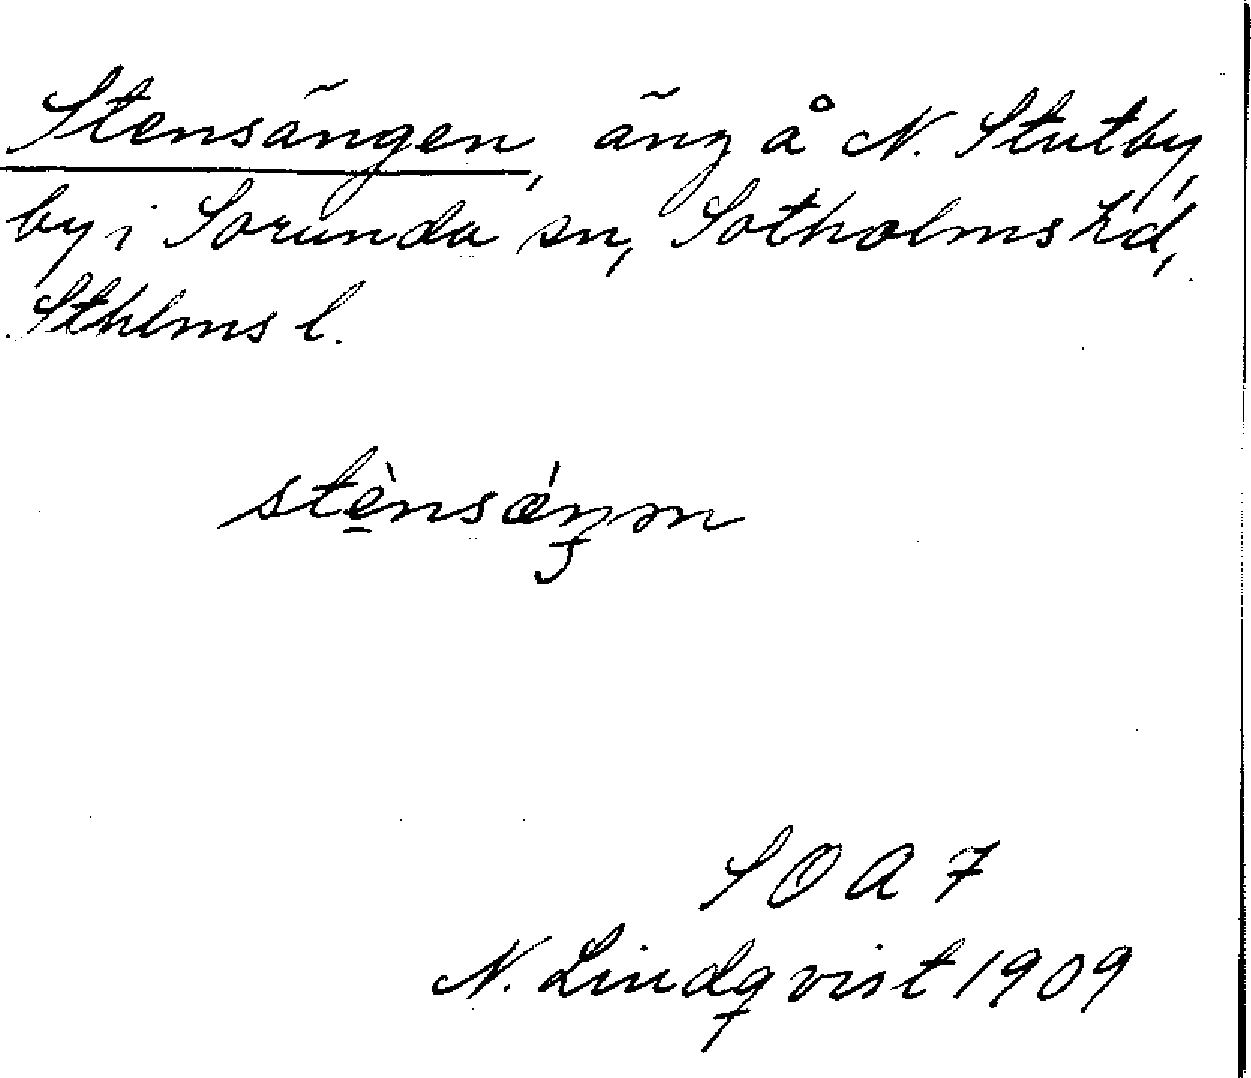 Stensängen, äng å N. Stutby,
by i Sorunda sn, Sotholms hd,
Sthlms l.
stẹ̀nsǽŋən
SOA 7
N. Lindqvist 1909